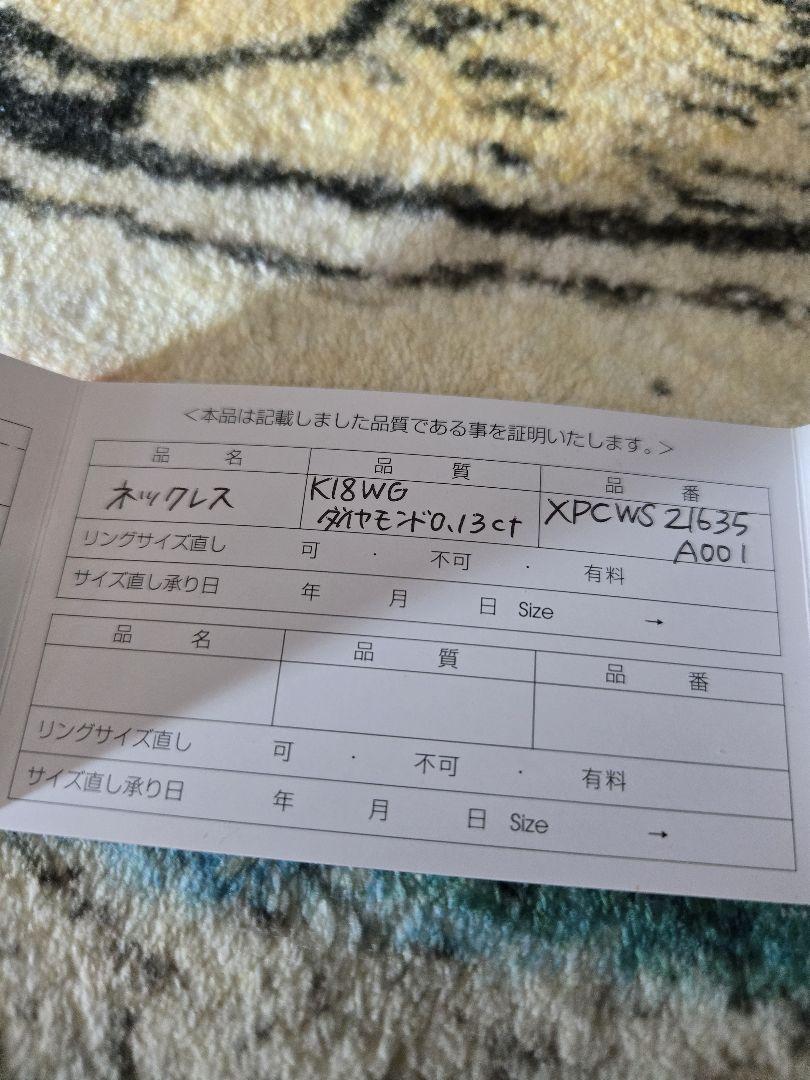 <本品は記載しました品質である事を証明いたします。>
品 名 品 質 品 番
ネックレス K18WG ダイヤモンド0.13ct XPCWS 21635 A001
リングサイズ直し 可 ・ 不可 ・ 有料
サイズ直し承り日 年 月 日 Size →
品 名 品 質 品 番
リングサイズ直し 可 ・ 不可 ・ 有料
サイズ直し承り日 年 月 日 Size →